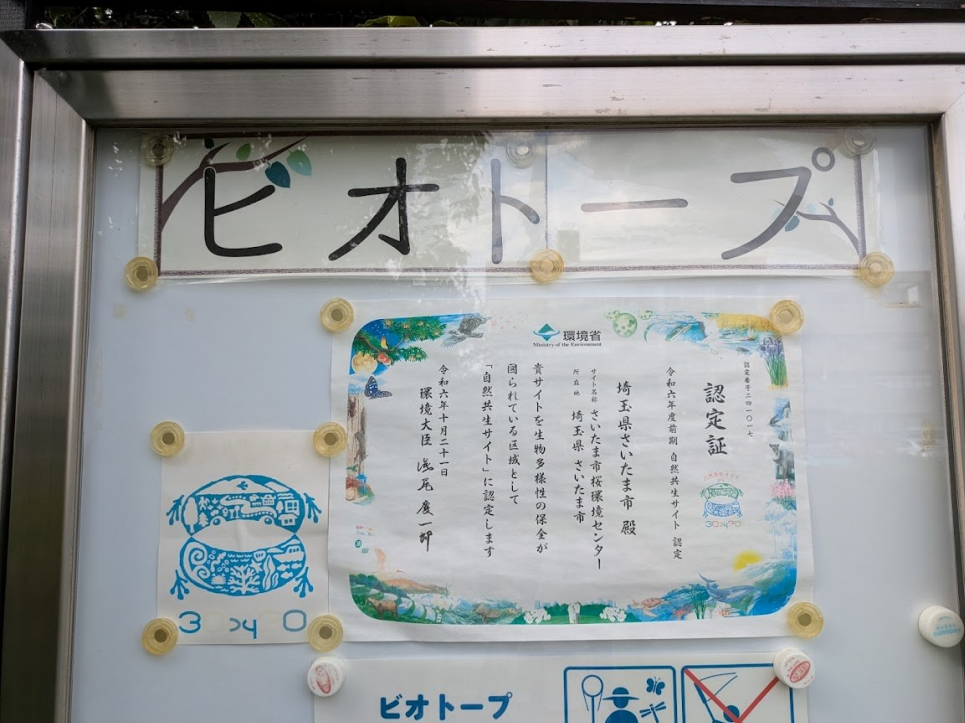 ビオトープ
環境省
Ministry of the Environment
認定番号二四一〇一七
認定証
令和六年度前期 自然共生サイト 認定
埼玉県さいたま市 殿
サイト名称 さいたま市桜環境センター
所在地 埼玉県 さいたま市
貴サイトを生物多様性の保全が
図られている区域として
「自然共生サイト」に認定します
令和六年十月二十一日
環境大臣
ビオトープ